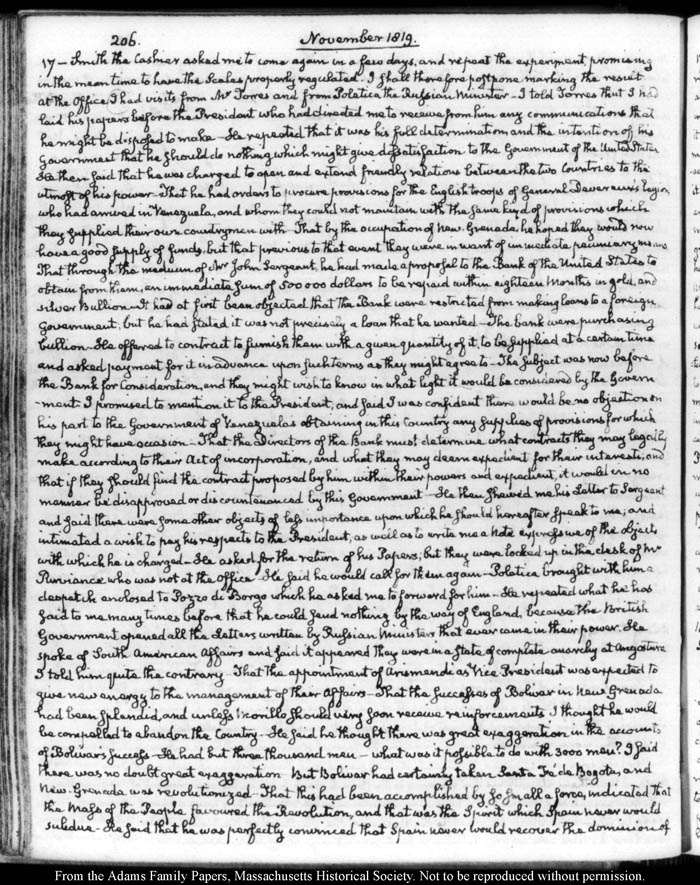 206.
November 1819.
17 — Smith the Cashier asked me to come again in a few days, and repeat the experiment, promising
in the mean time to have the Scales properly regulated. I shall therefore postpone marking the result
at the Office I had visits from Mr Torres and from Poletica the Russian Minister — I told Torres that I had
laid his papers before the President who had directed me to receive from him any communications that
he might be disposed to make — He repeated that it was his full determination and the intention of his
Government that he should do nothing which might give dissatisfaction to the Government of the United States
He then said that he was charged to open and extend friendly relations between the two Countries to the
utmost of his power — That he had orders to procure provisions for the English troops of General Devereux's Legion
who had arrived in Venezuela, and whom they could not maintain with the same kind of provisions which
they supplied their own countrymen with — That by the occupation of New Grenada, he hoped they would now
have a good supply of funds, but that previous to that event they were in want of immediate pecuniary means
That through the medium of Mr John Sergeant, he had made a proposal to the Bank of the United States to
obtain from them, an immediate sum of 500 000 dollars to be repaid within eighteen Months in gold, and
silver Bullion — It had at first been objected that the Bank were restricted from making loans to a foreign
Government; but he had stated it was not precisely a loan that he wanted — The bank were purchasing
bullion — He offered to contract to furnish them with a given quantity of it, to be supplied at a certain time
and asked payment for it in advance upon such terms as they might agree to — The subject was now before
the Bank for Consideration, and they might wish to know in what light it would be considered by the Govern
-ment — I promised to mention it to the President, and said I was confident there would be no objection on
his part to the Government of Venezuela's obtaining in this Country any supplies of provisions for which
they might have occasion — That the Directors of the Bank must determine what contracts they may legally
make according to their Act of incorporation, and what they may deem expedient for their interests; and
that if they should find the contract proposed by him within their powers and expedient, it would in no
manner be disapproved or discountenanced by this Government — He then shewed me his Letter to Sergeant
and said there were some other objects of less importance upon which he should hereafter speak to me; and
intimated a wish to pay his respects to the President, as well as to write me a Note expressive of the objects
with which he is charged — He asked for the return of his Papers; but they were locked up in the desk of Mr
Purviance who was not at the Office — He said he would call for them again — Poletica brought with him a
despatch enclosed to Pozzo di Borgo which he asked me to forward for him — He repeated what he has
said to me many times before that he could send nothing by the way of England, because the British
Government opened all the Letters written by Russian Ministers that ever came in their power. He
spoke of South American Affairs and said it appeared they were in a state of complete anarchy at Angostura
I told him quite the contrary — That the appointment of Arismendi as Vice President was expected to
give new energy to the management of their Affairs — That the Successes of Bolivar in New Grenada
had been splendid, and unless Morillo should very soon receive reinforcements I thought he would
be compelled to abandon the Country — He said he thought there was great exaggeration in the accounts
of Bolivar's success — He had but three thousand men — what was it possible to do with 3000 men? I said
there was no doubt great exaggeration — But Bolivar had certainly taken Santa Fé de Bogota, and
New Grenada was revolutionized — That this had been accomplished by so small a force, indicated that
the Mass of the People favoured the Revolution, and that was the Spirit which Spain never would
subdue — He said that he was perfectly convinced that Spain never would recover the dominion of
From the Adams Family Papers, Massachusetts Historical Society. Not to be reproduced without permission.